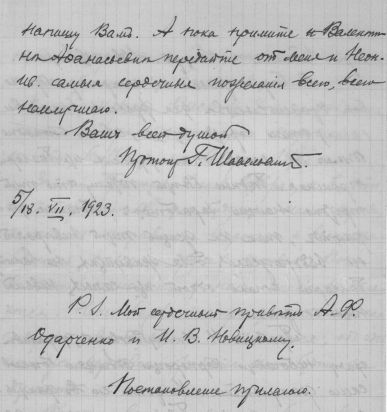 напишу Вамъ. А пока примите и Валенти-
нѣ Афанасьевнѣ передайте отъ меня и Неон.
Ив. самыя сердечныя пожеланія всего, всего
наилучшаго.
Вашъ всей душой
Протопр. Г. Шавельскій.
5/18. VII. 1923.
P. S. Мой сердечный привѣтъ А. Ф.
Одарченко и И. В. Новицкому.
Постановленіе прилагаю.